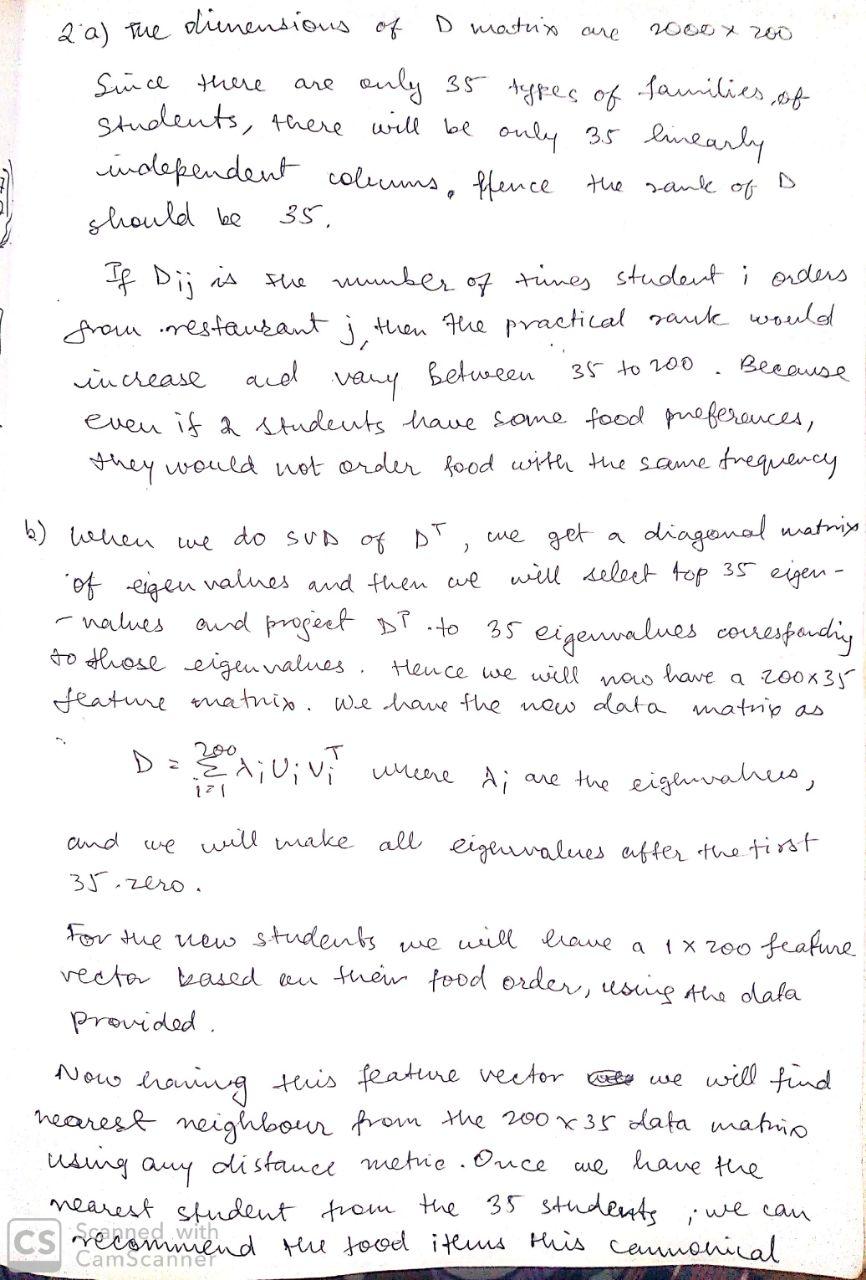 2 a) The dimensions of D matrix are 2000 x 200
Since there are only 35 types of families, of
students, there will be only 35 linearly
independent columns. Hence the rank of D
should be 35.
If Dij is the number of times student i orders
from restaurant j, then the practical rank would
increase and vary between 35 to 200. Because
even if 2 students have same food preferences,
they would not order food with the same frequency
b) When we do SVD of D^T, we get a diagonal matrix
of eigen values and then we will select top 35 eigen-
-values and project D^T to 35 eigenvalues corresponding
to those eigenvalues. Hence we will now have a 200x35
feature matrix. We have the new data matrix as
D = 200 Σ i=1 λi Ui Vi^T where λi are the eigenvalues,
and we will make all eigenvalues after the first
35 zero.
For the new students we will have a 1 x 200 feature
vector based on their food order, using the data
provided.
Now having this feature vector we will find
nearest neighbour from the 200 x 35 data matrix
using any distance metric. Once we have the
nearest student from the 35 students, we can
recommend the food items this cannonical
CS Scanned with
CamScanner